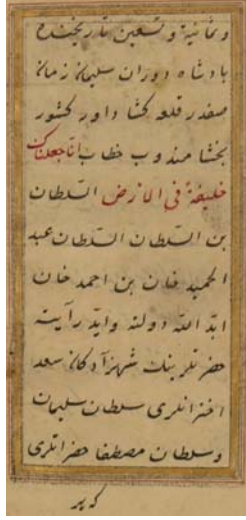 وثمانية وتسعين تاریخنده
پادشاه دوران سلیمان زمان
صفدر قلعه کشا داور کشور
بخشا مندوب خطاب انا جعلناک
خلیفة فی الارض السلطان
بن السلطان السلطان عبد
الحمید خان بن احمد خان
ابد الله دولته واید رآیته
حضرتلرینك شهزآدکان سعد
اخترانلری سلطان سلیمان
وسلطان مصطفا حضراتلری
که بر